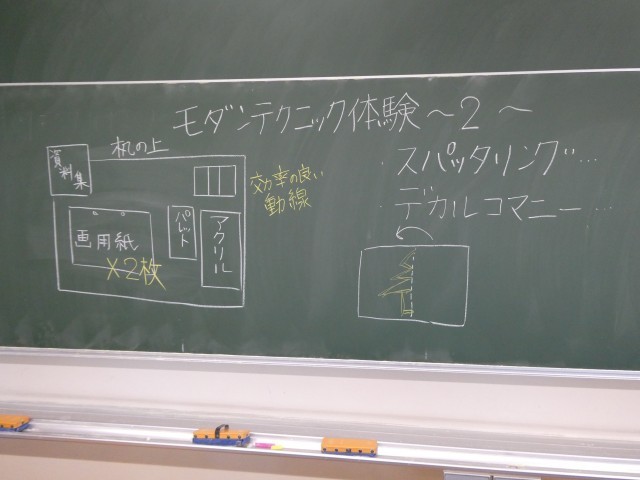 モダンテクニック体験～2～
・スパッタリング…
・デカルコマニー…
机の上
資料集
画用紙
×2枚
パレット
アクリル
効率の良い
動線